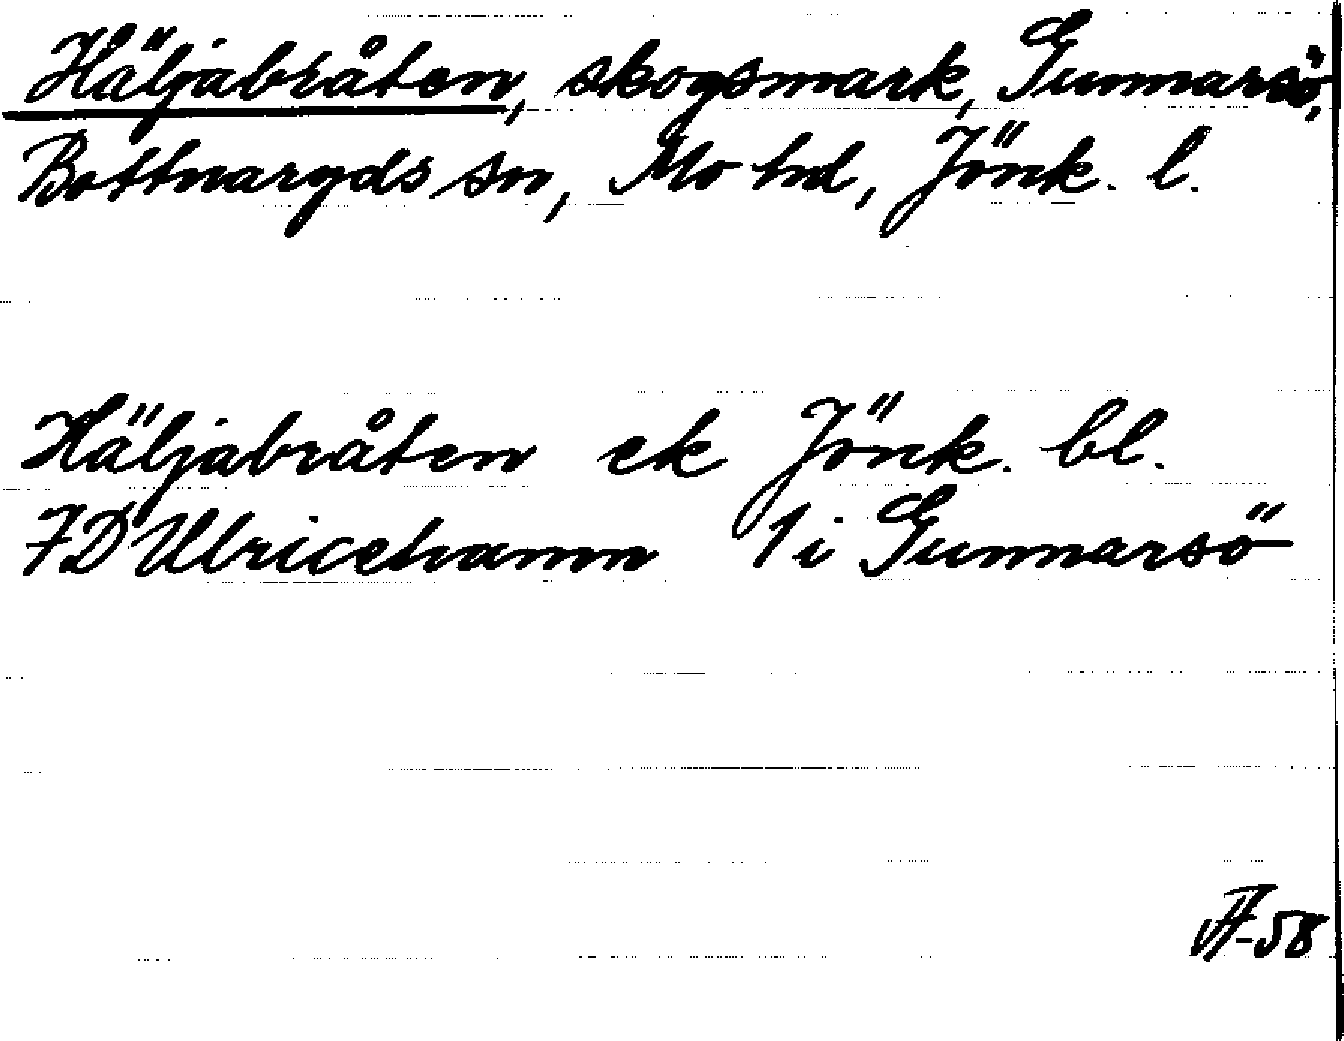 Häljabråten, skogsmark, Gunnarsö,
Bottnaryds sn, Mo hd, Jönk. l.
Häljabråten ek Jönk. bl.
7D Ulricehamn 1 i Gunnarsö
-58